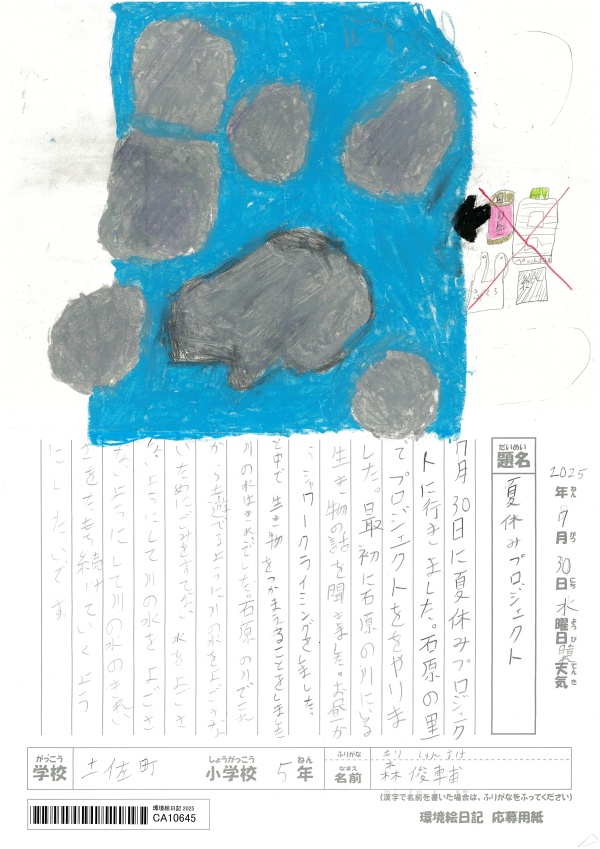 2025年7月30日水曜日晴天気
ねん がつ にち ようび てんき
だいめい
題名
夏休みプロジェクト
7月30日に夏休みプロジェク
トに行きました。石原の里
てプロジェクトををやりま
した。最初に石原の川にいる
生き物の話を聞きました。お昼か
らシャワークライミングをしました。
と中で生き物をつかまえることをしました
川の水はきれいでした。石原の川でこれ
からも遊べるように川の水をよごさな
いためにごみをすてない、水をよごさ
ないようにして川の水をよごさ
ないようにして川の水のきれい
さをたもち続けていくよう
にしたいです。
がっこう
学校
土佐町
しょうがっこう
小学校
5
ねん
年
ふりがな
もり しゅんすけ
なまえ
名前
森
(漢字で名前を書いた場合は、ふりがなをふってください)
環境絵日記 2025
CA10645
環境絵日記 応募用紙